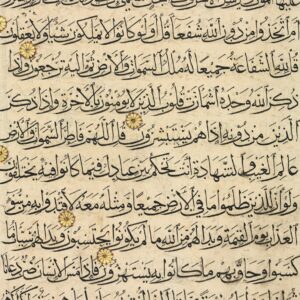 أم اتخذوا من دون الله شفعاء قل أولو كانوا لا يملكون شيئا ولا يعقلون
قل لله الشفاعة جميعا له ملك السموات والأرض ثم إليه ترجعون وإذا
ذكر الله وحده اشمأزت قلوب الذين لا يؤمنون بالآخرة وإذا ذكر
الذين من دونه إذا هم يستبشرون قل اللهم فاطر السموات والأرض
عالم الغيب والشهادة أنت تحكم بين عبادك فيما كانوا فيه يختلفون
ولو أن للذين ظلموا ما في الأرض جميعا ومثله معه لافتدوا به من سوء
العذاب يوم القيمة وبدا لهم من الله ما لم يكونوا يحتسبون وبدا لهم سيئات ما
كسبوا وحاق بهم ما كانوا به يستهزءون فإذا مس الإنسان ضر دعانا